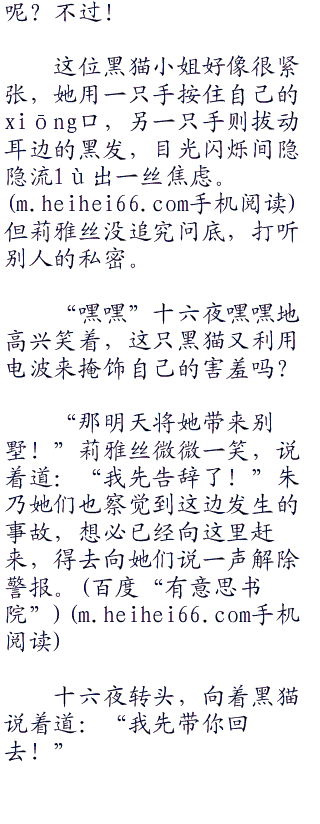 呢？不过！
这位黑猫小姐好像很紧
张，她用一只手按住自己的
xiōng口，另一只手则拔动
耳边的黑发，目光闪烁间隐
隐流lù出一丝焦虑。
(m.heihei66.com手机阅读)
但莉雅丝没追究问底，打听
别人的私密。
“嘿嘿”十六夜嘿嘿地
高兴笑着，这只黑猫又利用
电波来掩饰自己的害羞吗？
“那明天将她带来别
墅！”莉雅丝微微一笑，说
着道：“我先告辞了！”朱
乃她们也察觉到这边发生的
事故，想必已经向这里赶
来，得去向她们说一声解除
警报。(百度“有意思书
院”)(m.heihei66.com手机
阅读)
十六夜转头，向着黑猫
说着道：“我先带你回
去！”